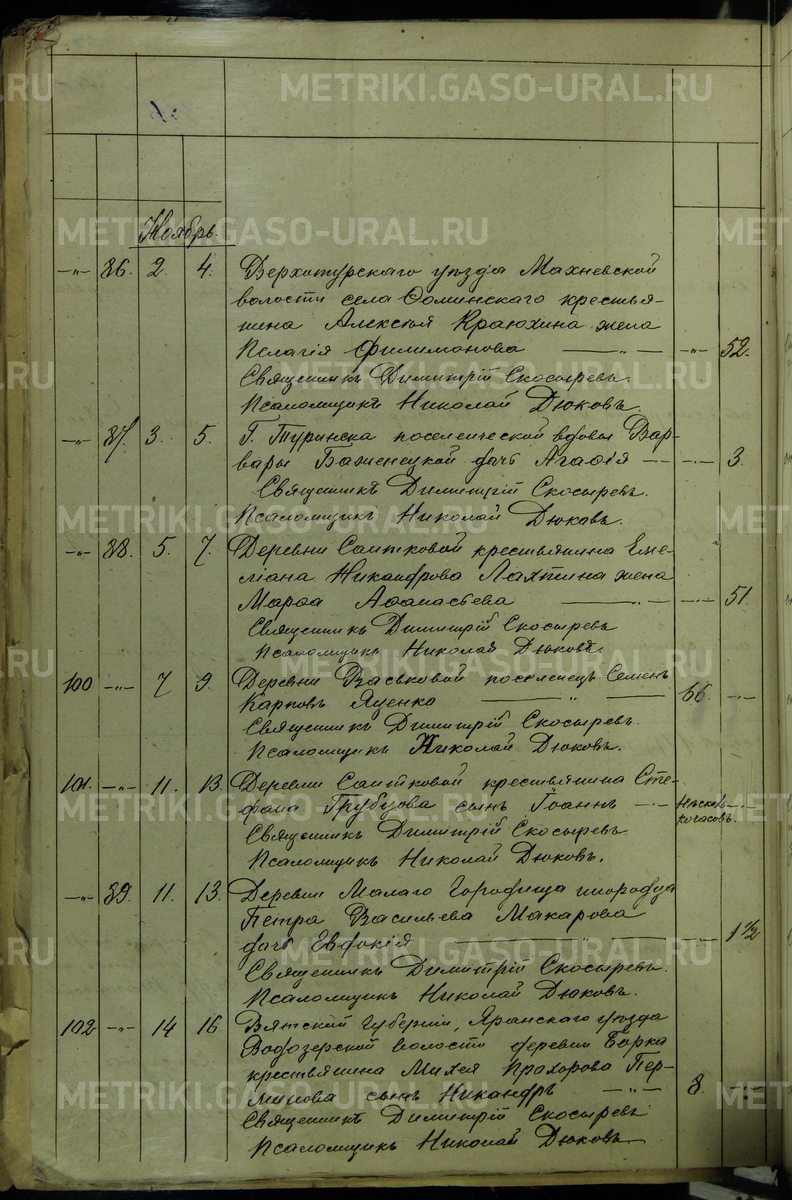 METRIKI.GASO-URAL.RU
Ноябрь.
—„— 86. 2. 4. Верхотурскаго уѣзда Махневской
волости села Ѳоминскаго крестья-
нина Алексѣя Краюхина жена
Пелагія Филимонова —„— —„— 52.
Священникъ Димитрій Скосыревъ.
Псаломщикъ Николай Дюковъ.
—„— 87. 3. 5. Г. Туринска поселенческой вдовы Вар-
вары Баженецкой дочь Агафія —„— —„— 3.
Священникъ Димитрій Скосыревъ.
Псаломщикъ Николай Дюковъ.
—„— 88. 5. 7. Деревни Саитковой крестьянина Еме-
ліана Никанфрова Лахтина жена
Марѳа Аѳанасьева —„— —„— 51.
Священникъ Димитрій Скосыревъ
Псаломщикъ Николай Дюковъ.
100 —„— 7 9. Деревни Васьковой поселенецъ Семенъ
Карповъ Яценко —„— 66 —„—
Священникъ Димитрій Скосыревъ.
Псаломщикъ Николай Дюковъ.
101. —„— 11. 13. Деревни Саитковой крестьянина Сте-
фана Грубцова сынъ Іоаннъ —„— Нѣсколь-
ко часовъ. —„—
Священникъ Димитрій Скосыревъ
Псаломщикъ Николай Дюковъ.
—„— 89. 11. 13. Деревни Малаго Городища инородца
Петра Васильева Макарова
дочь Евдокія —„— —„— 1 1/2
Священникъ Димитрій Скосыревъ.
Псаломщикъ Николай Дюковъ.
102 —„— 14 16 Вятской Губерніи, Яранскаго уѣзда
Водозерской волости деревни Борка
крестьянина Михея Прохорова Пер-
минова сынъ Никандръ —„— 8. —„—
Священникъ Димитрій Скосыревъ
Псаломщикъ Николай Дюковъ